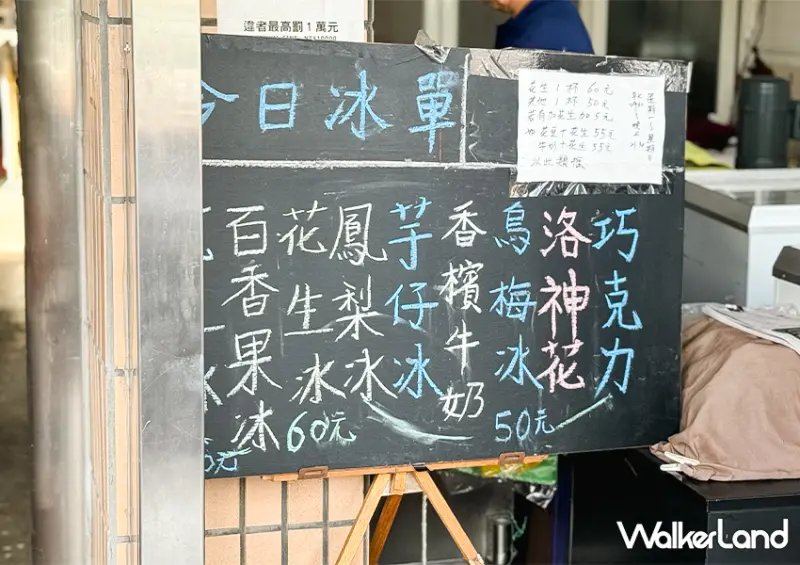 違者最高罰1萬元
今日冰單
花生1杯 60元
其他1杯 50元
若有加花生加5元
如 花豆+花生 55元
牛奶+花生 55元
以此類推
巧克力
洛神花
烏梅冰
50元
香檳牛奶
芋仔冰
鳳梨冰
花生冰
60元
百香果冰
WALKERLAND